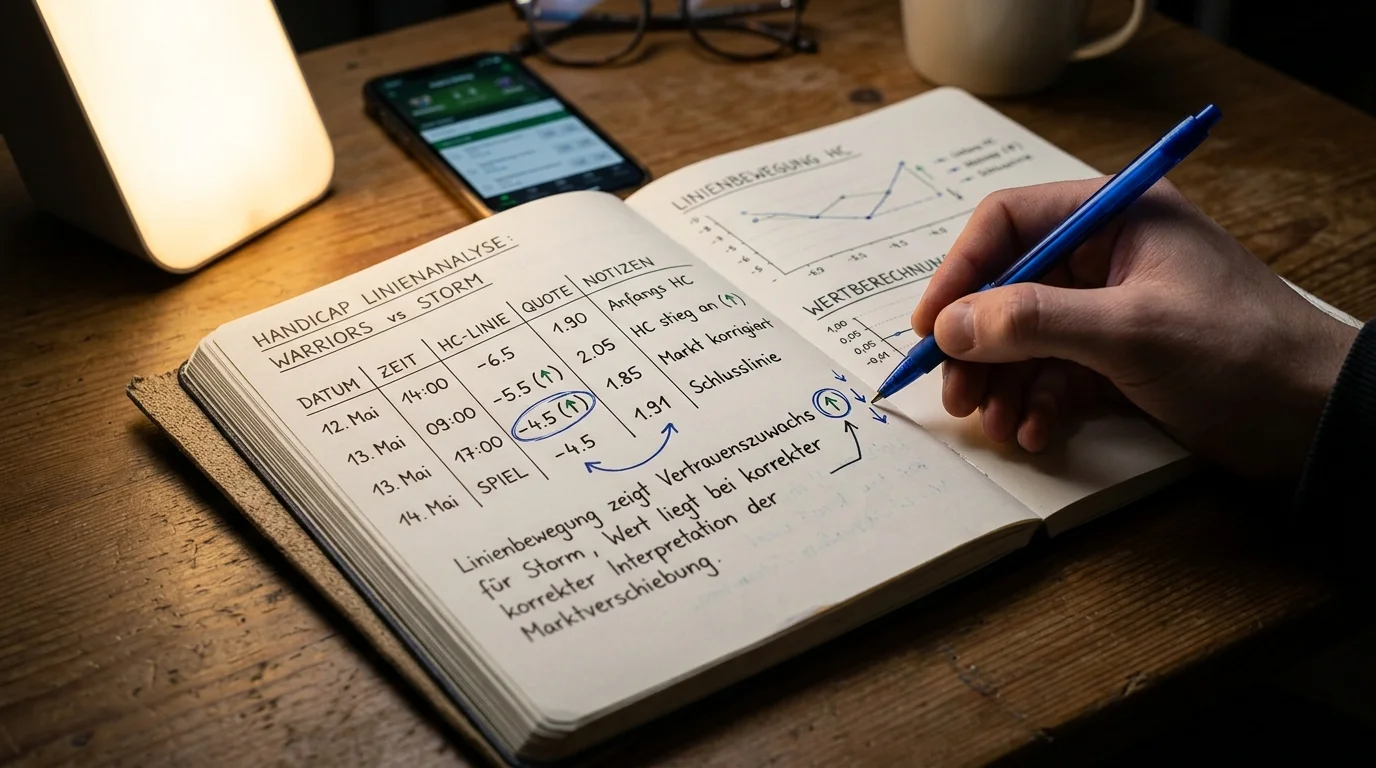 HANDICAP LINIENANALYSE:
WARRIORS vs STORM
DATUM ZEIT HC-LINIE QUOTE NOTIZEN
12. Mai 14:00 -6.5 1.90 Anfangs HC
13. Mai 09:00 -5.5 (↑) 2.05 HC stieg an (↑)
13. Mai 17:00 -4.5 (↑) 1.85 Markt korrigiert
14. Mai SPIEL -4.5 1.91 Schlusslinie
Linienbewegung zeigt Vertrauenszuwachs ↑
für Storm, Wert liegt bei korrekter
korrekter Interpretation der
Marktverschiebung.
LINIENBEWEGUNG HC
WERTBERECHNUN
1,00
0,05
0,05